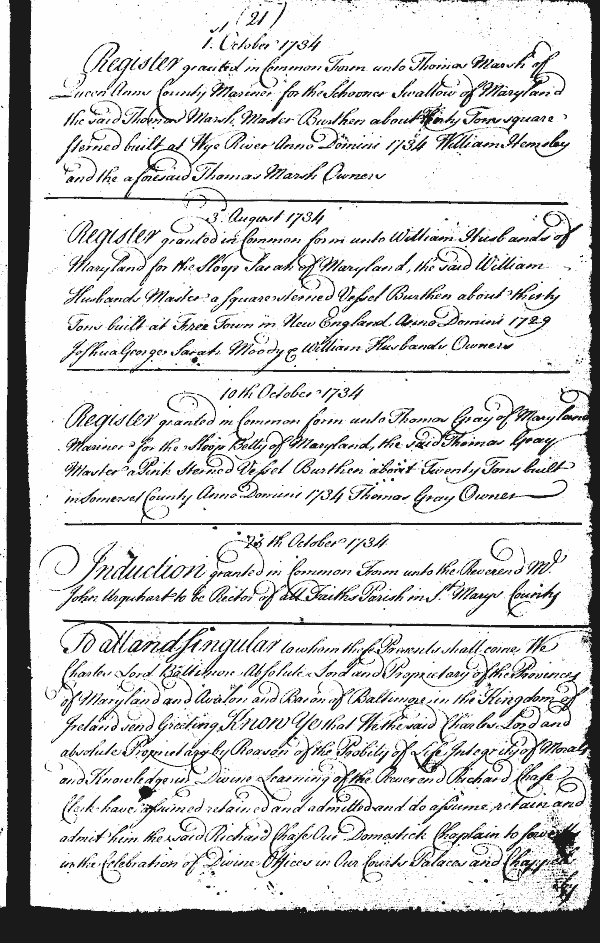 (21)
1. October 1734
Register granted in Common Form unto Thomas Marsh of
Queen Anns County Mariner for the Schooner Swallow of Maryland
the said Thomas Marsh Master Burthen about thirty Tons square
sterned built at Wye River Anno Domini 1734 William Hemsley
and the aforesaid Thomas Marsh Owners
3. August 1734
Register granted in Common form unto William Husbands of
Maryland for the Sloop Sarah of Maryland, the said William
Husbands Master a square sterned Vessel Burthen about thirty
Tons built at Free Town in New England Anno Domini 1729
Joshua George Sarah Moody & William Husbands Owners
10th October 1734
Register granted in Common form unto Thomas Gray of Maryland
Mariner for the Sloop Betty of Maryland, the said Thomas Gray
Master a Pink sterned Vessel Burthen about Twenty Tons built
in Somerset County Anno Domini 1734 Thomas Gray Owner
th October 1734
Induction granted in Common Form unto the Reverend Mr.
John Urquhart to be Rector of all Faiths Parish in St. Marys County
To all and Singular to whom these Presents shall come We
Charles Lord Baltimore Absolute Lord and Proprietary of the Provinces
of Maryland and Avalon and Baron of Baltimore in the Kingdom of
Ireland send Greeting Know Ye that We the said Charles Lord and
absolute Proprietary by Reason of the Probity of Life Integrity of Morals
and Knowledge in Divine Learning of the Reverend Richard Chase
Clerk have assumed retained and admitted and do assume, retain and
admit him the said Richard Chase Our Domestick Chaplain to
in the Celebration of Divine Offices in Our Courts Palaces and Chappels
by